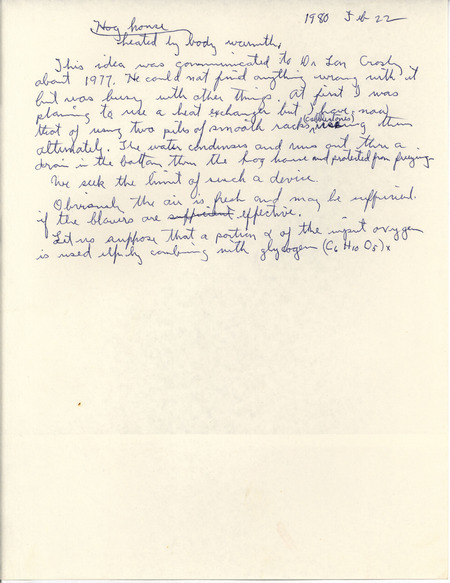 1980 Feb 22
Hog house
heated by body warmth.
This idea was communicated to Dr Ian Crosby
about 1977. He could not find anything wrong with it
but was busy with other things. At first I was
planning to use a heat exchanger but I have now
(cobblestones)
that of using two piles of smooth rocks, using them
alternately. The water condenses and runs out thru a
drain in the bottom thru the hog house and protected from freezing.
We seek the limit of such a device
Obviously the air is fresh and may be sufficient.
if the blowers are sufficient effective.
Let us suppose that a portion α of the input oxygen
is used up by combining with glycogen (C6 H10 O5)x